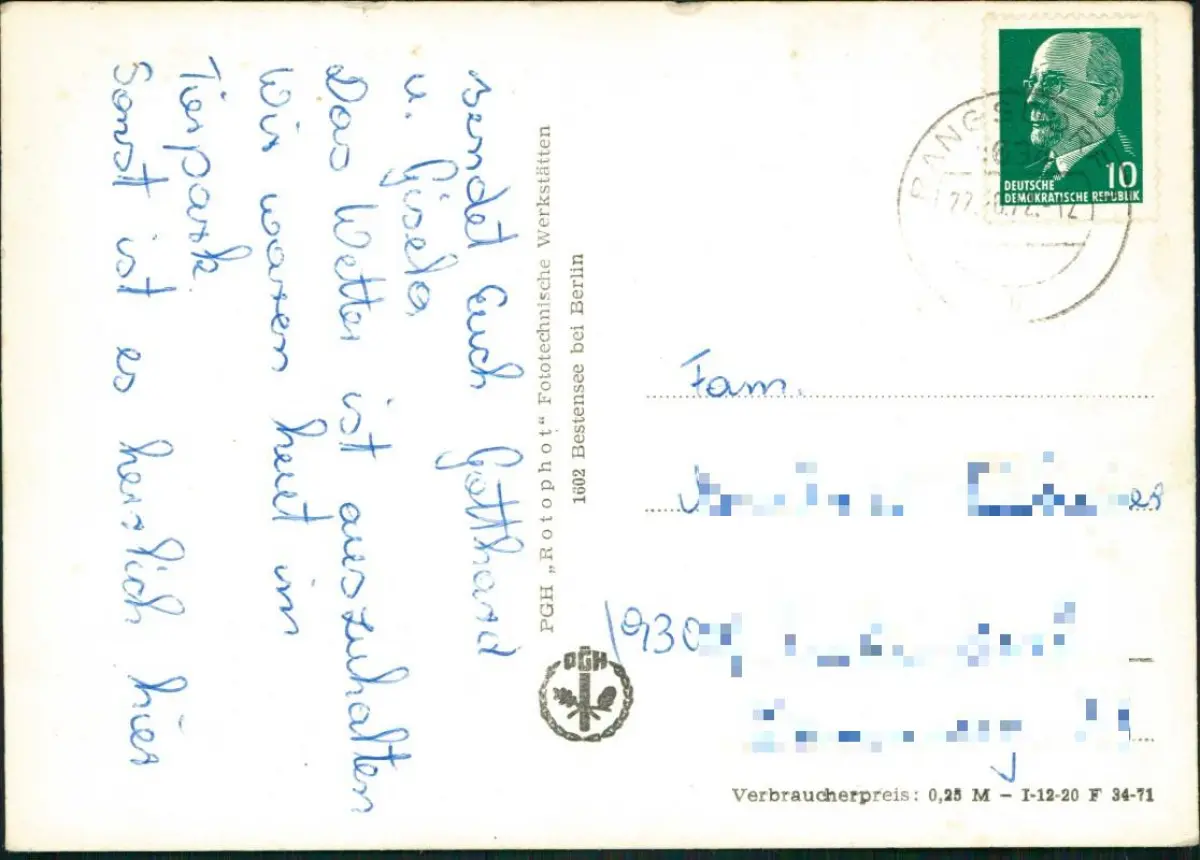 sendet Euch Gotthard
u. Gisela
Das Wetter ist auszuhalten
Wir waren heut im
Tierpark.
Sonst ist es herrlich hier
PGH „Rotophot“ Fototechnische Werkstätten
1602 Bestensee bei Berlin
PGH
RANGSDORF
10
DEUTSCHE
DEMOKRATISCHE REPUBLIK
Fam.
1930
Verbraucherpreis: 0,25 M – I-12-20 F 34-71